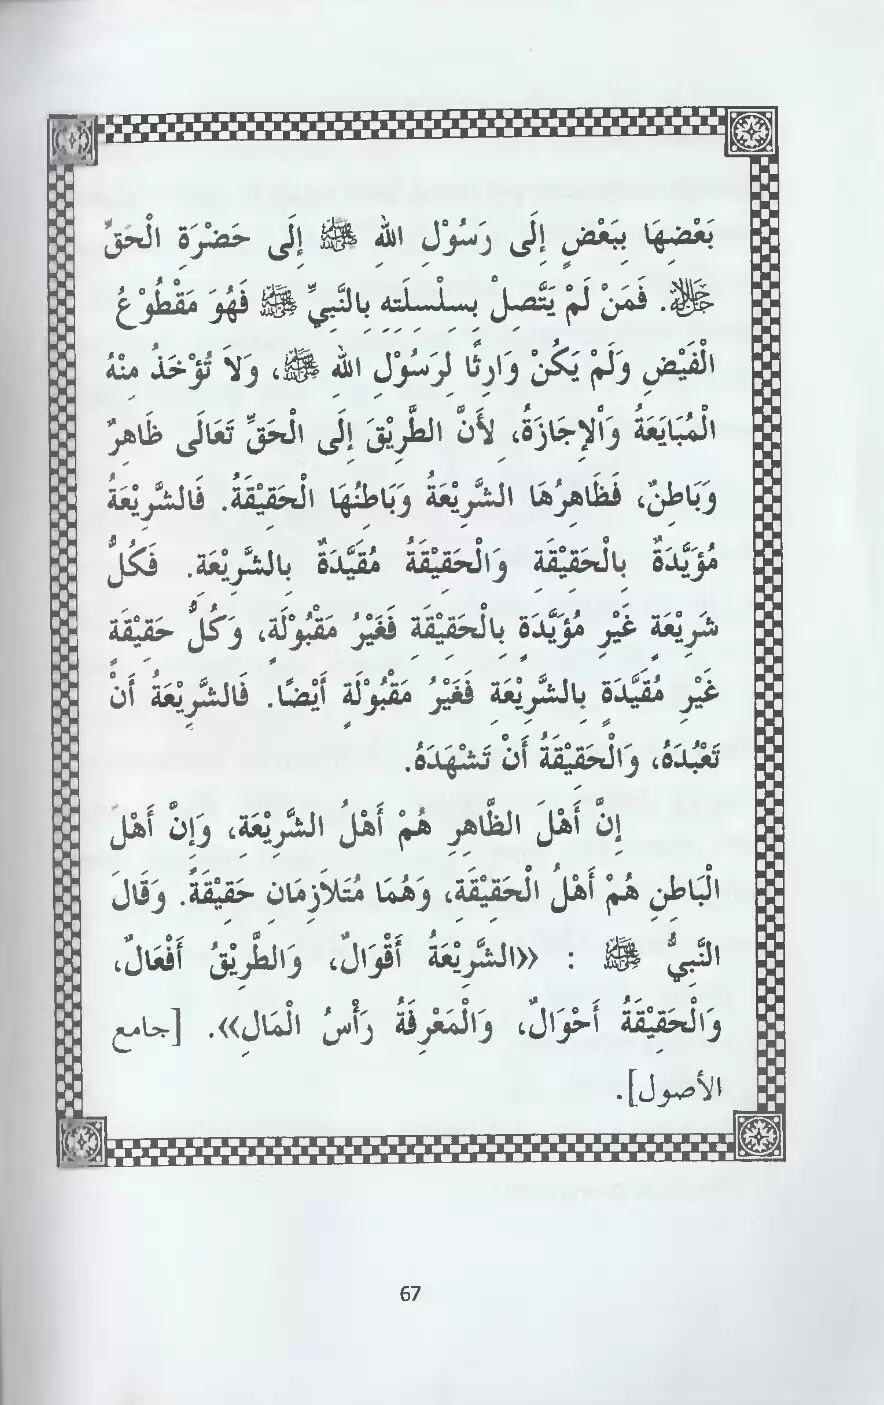 بَعْضِهَا بِبَعْضٍ إِلَى رَسُوْلِ اللهِ ﷺ إِلَى حَضْرَةِ الْحَقِّ
ﷻ. فَمَنْ لَمْ يَتَّصِلْ بِسِلْسِلَتِهِ بِالنَّبِيِّ ﷺ فَهُوَ مَقْطُوْعُ
الْفَيْضِ وَلَمْ يَكُنْ وَارِثًا لِرَسُوْلِ اللهِ ﷺ، وَلاَ تُؤْخَذُ مِنْهُ
الْمُبَايَعَةُ وَاْلإِجَازَةُ، ِلأَنَّ الطَّرِيْقَ إِلَى الْحَقِّ تَعَالَى ظَاهِرٌ
وَبَاطِنٌ، فَظَاهِرُهَا الشَّرِيْعَةُ وَبَاطِنُهَا الْحَقِيْقَةُ. فَالشَّرِيْعَةُ
مُؤَيَّدَةٌ بِالْحَقِيْقَةِ وَالْحَقِيْقَةُ مُقَيَّدَةٌ بِالشَّرِيْعَةِ. فَكُلُّ
شَرِيْعَةٍ غَيْرِ مُؤَيَّدَةٍ بِالْحَقِيْقَةِ فَغَيْرُ مَقْبُوْلَةٍ، وَكُلُّ حَقِيْقَةٍ
غَيْرِ مُقَيَّدَةٍ بِالشَّرِيْعَةِ فَغَيْرُ مَقْبُوْلَةٍ أَيْضًا. فَالشَّرِيْعَةُ أَنْ
تَعْبُدَهُ، وَالْحَقِيْقَةُ أَنْ تَشْهَدَهُ.
إِنَّ أَهْلَ الظَّاهِرِ هُمْ أَهْلُ الشَّرِيْعَةِ، وَإِنَّ أَهْلَ
الْبَاطِنِ هُمْ أَهْلُ الْحَقِيْقَةِ، وَهُمَا مُتَلاَزِمَانِ حَقِيْقَةً. وَقَالَ
النَّبِيُّ ﷺ : «الشَّرِيْعَةُ أَقْوَالٌ، وَالطَّرِيْقُ أَفْعَالٌ،
وَالْحَقِيْقَةُ أَحْوَالٌ، وَالْمَعْرِفَةُ رَأْسُ الْمَالِ». [جامع
الأصول].
67